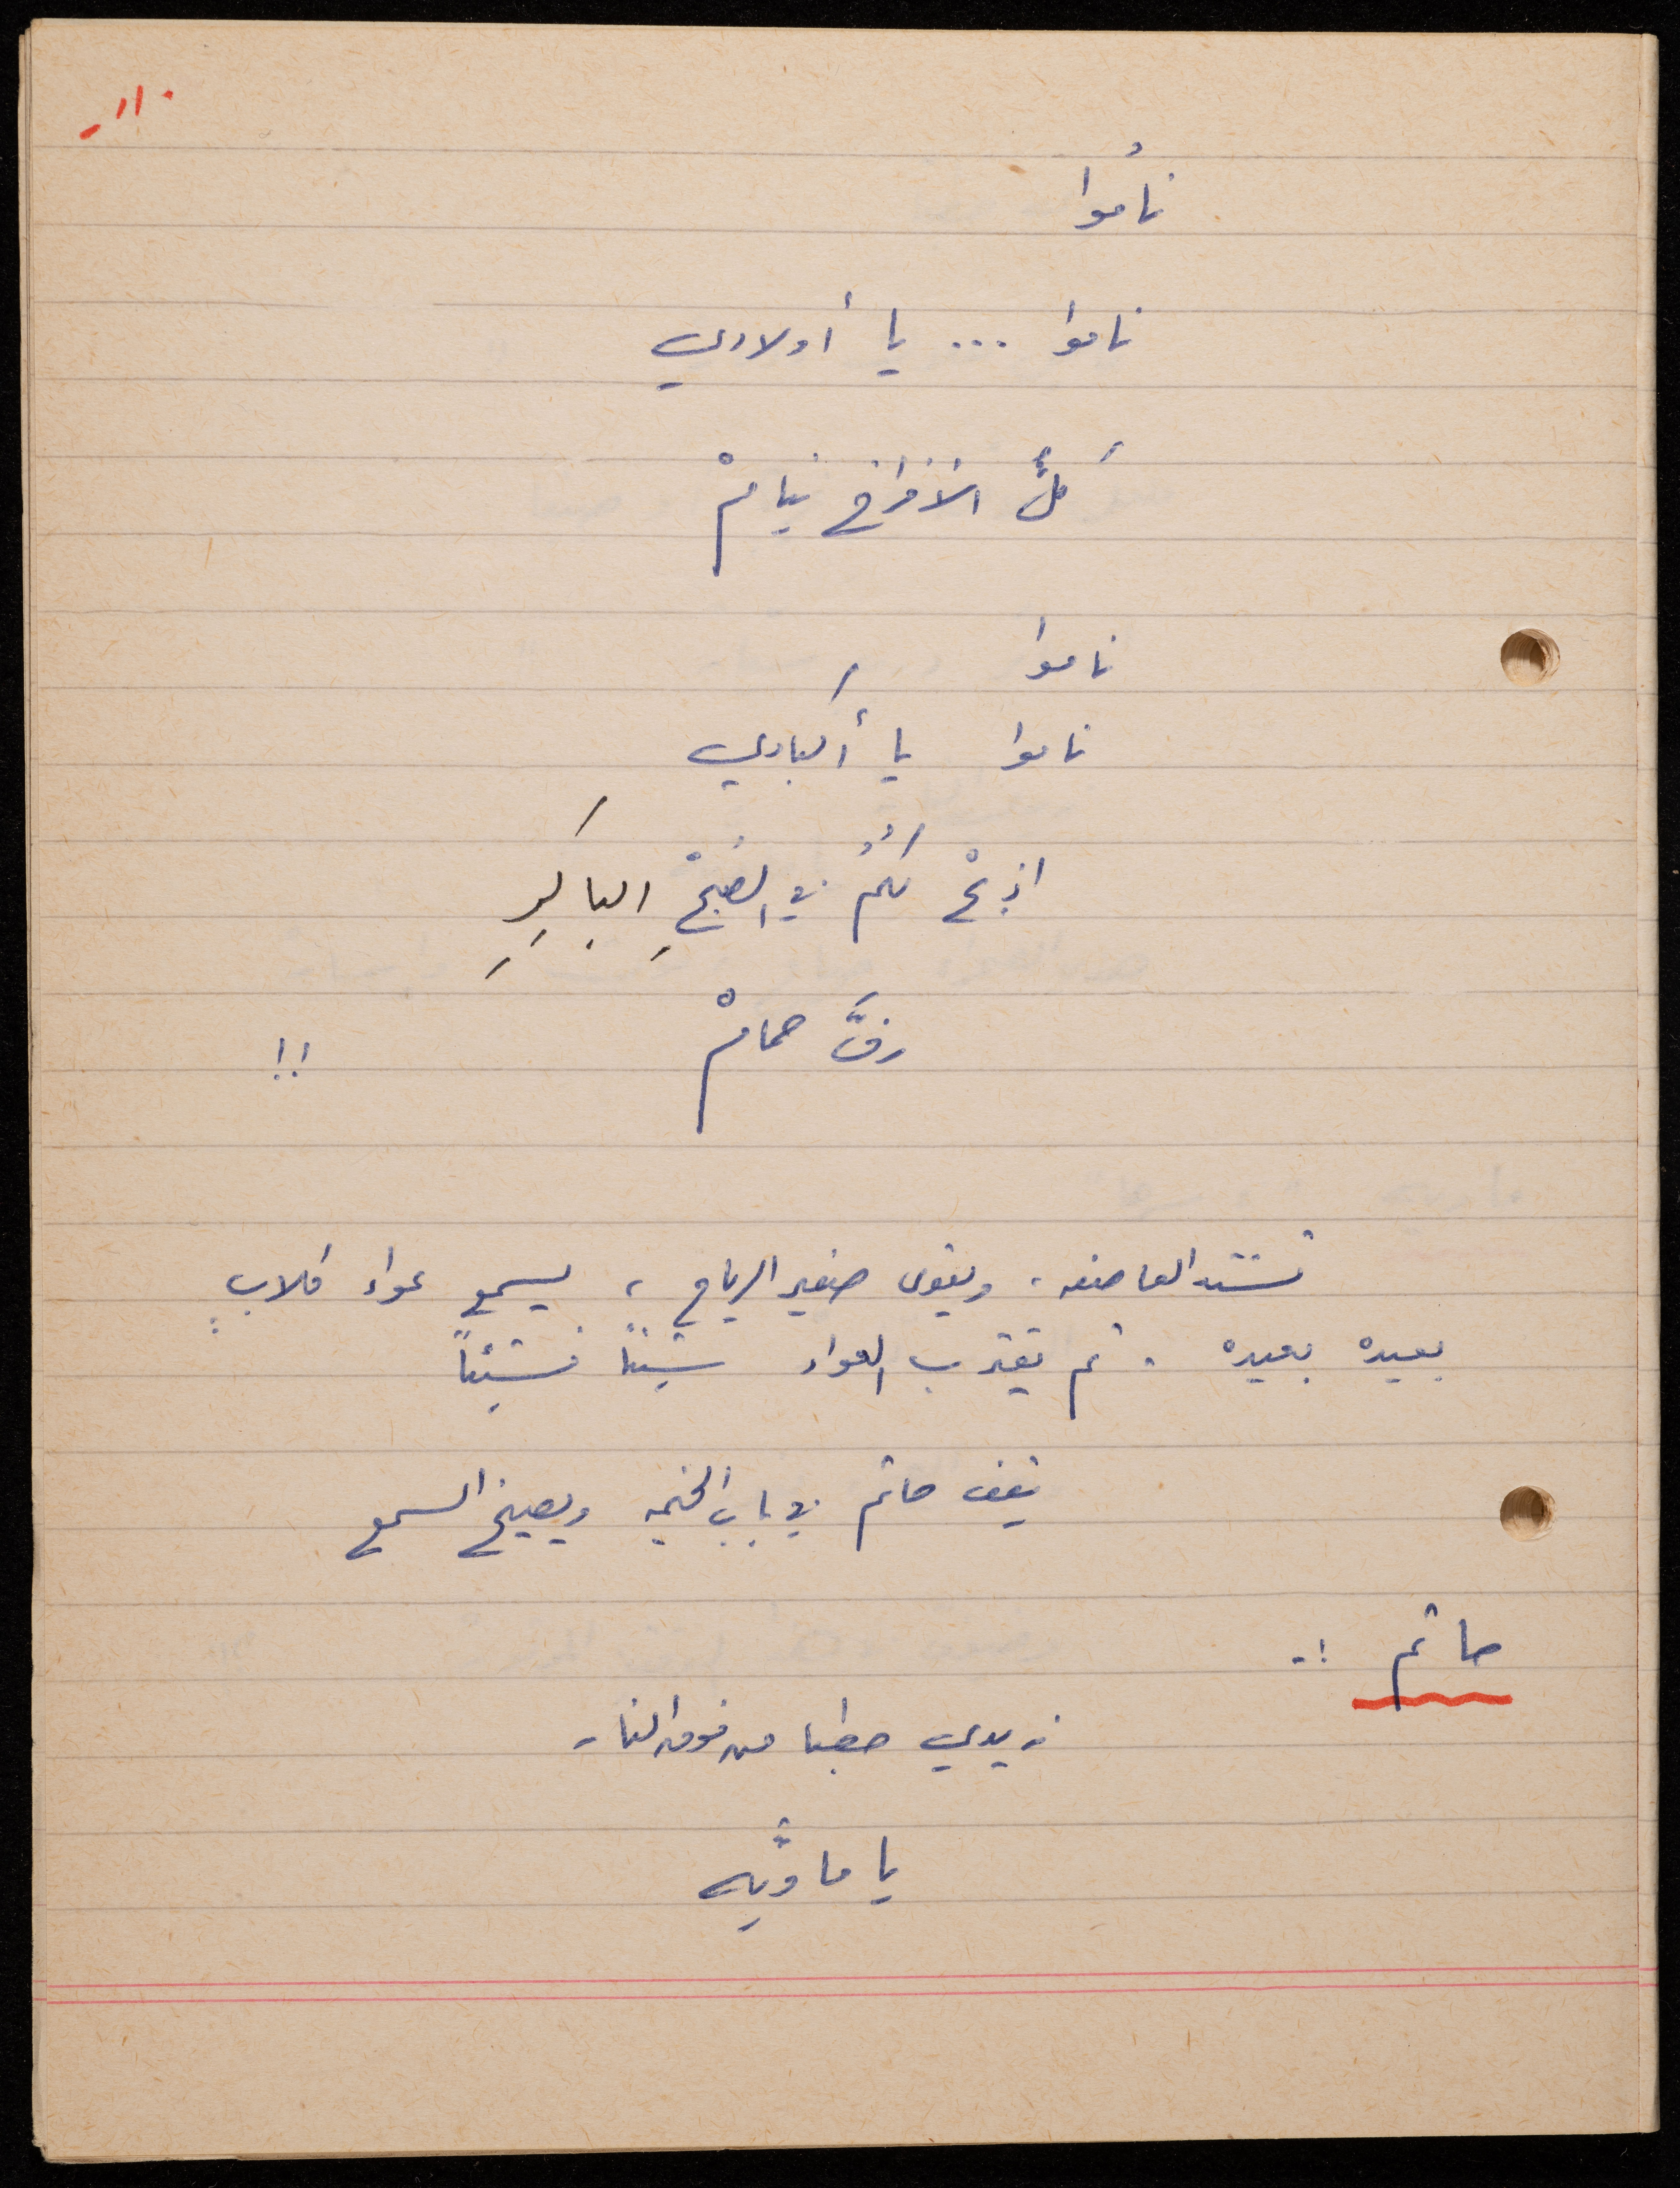 -١١٠
نامُوا
ناموا ... يا أولادي
كلُّ الأفراخ نيامْ
ناموا
ناموا يا أكبادي
اذبحْ لكُمُ في الصُبْحِ الباكِرِ
زفَّ حمامْ !!
تشتد العاصفه، ويقوى صفير الرياح، يسمع عواء كلابٍ
بعيده بعيده. ثم يقترب العواء شيئاً فشيئاً
يقف حاتم في باب الخيمه ويصيخ السمع
حاتم :-
زيدي حطبا من فوق النار
يا ماويَّه